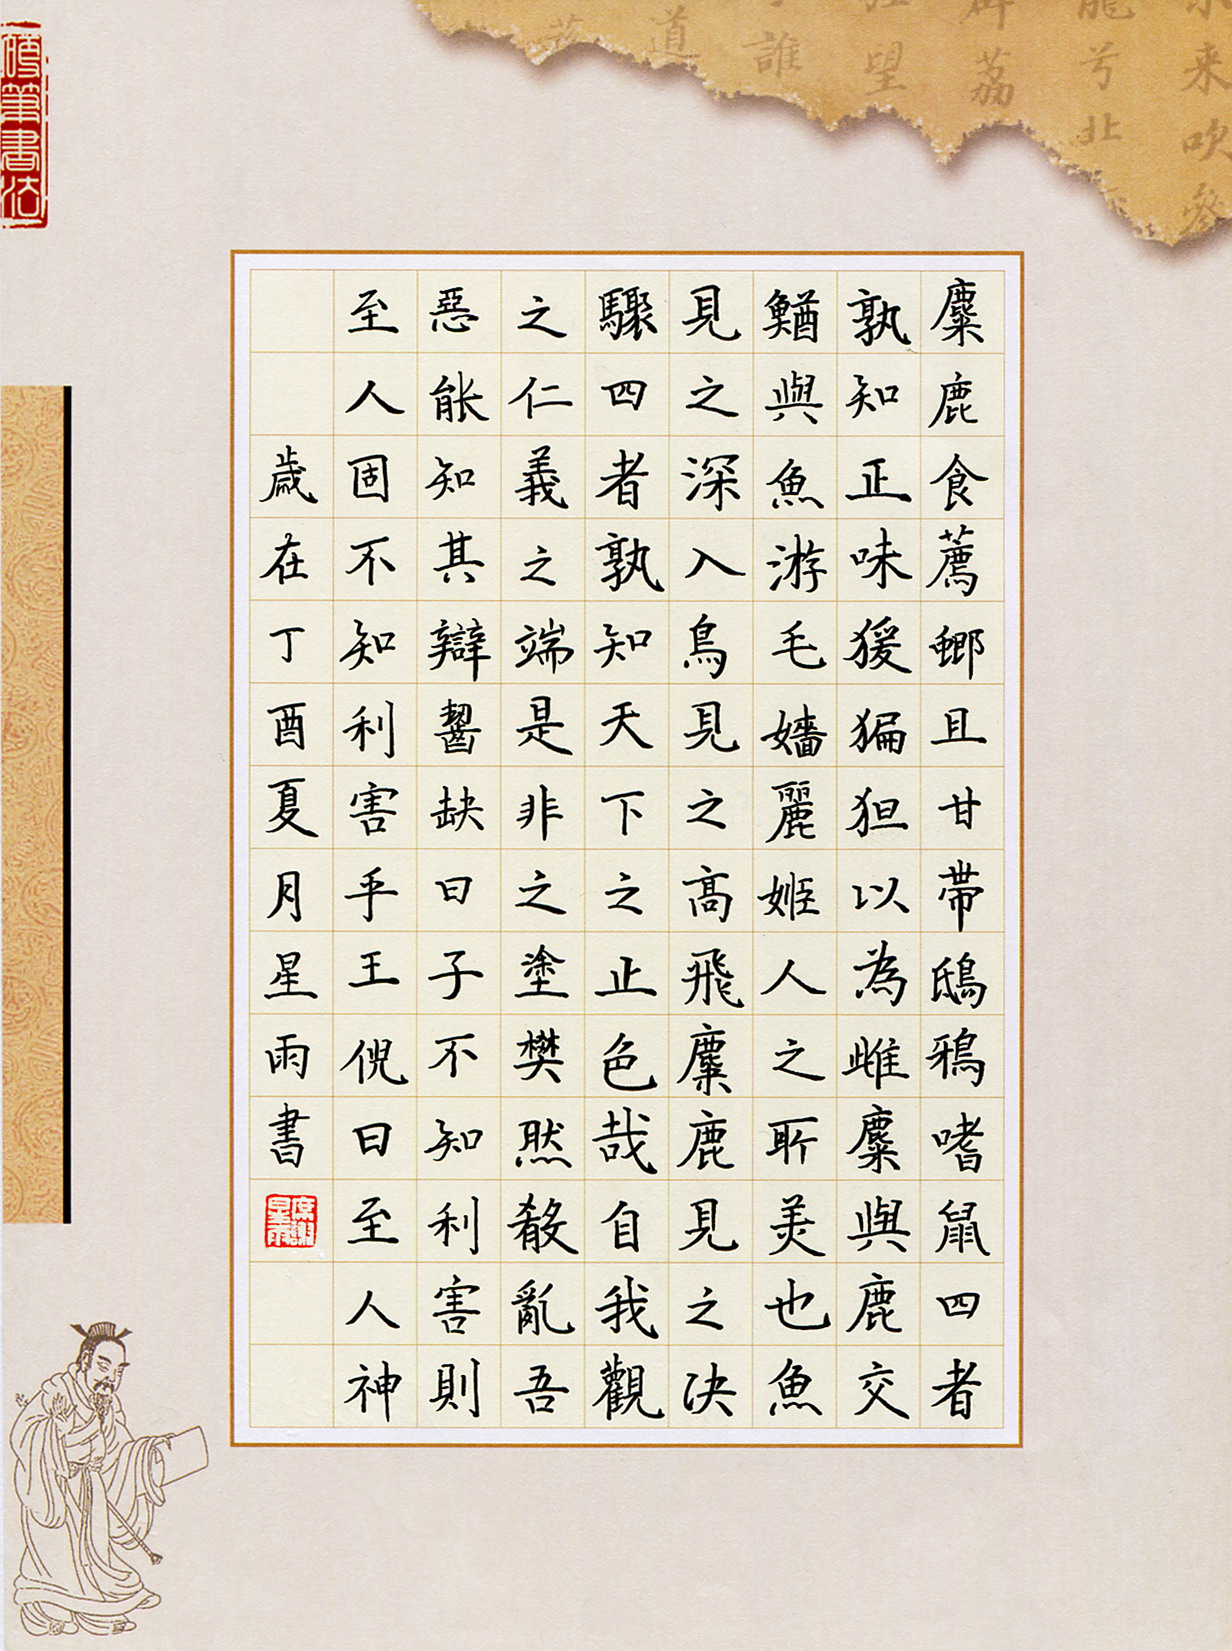 麋鹿食薦螂且甘帶鴟鴉嗜鼠四者
孰知正味猨猵狙以為雌麋與鹿交
鰌與魚游毛嬙麗姬人之所美也魚
見之深入鳥見之高飛麋鹿見之决
驟四者孰知天下之止色哉自我觀
之仁義之端是非之塗樊然殽亂吾
惡能知其辯齧缺曰子不知利害則
至人固不知利害乎王倪曰至人神
歲在丁酉夏月星雨書
硬筆書法
来吹參
龍兮北
荔
望
誰
道